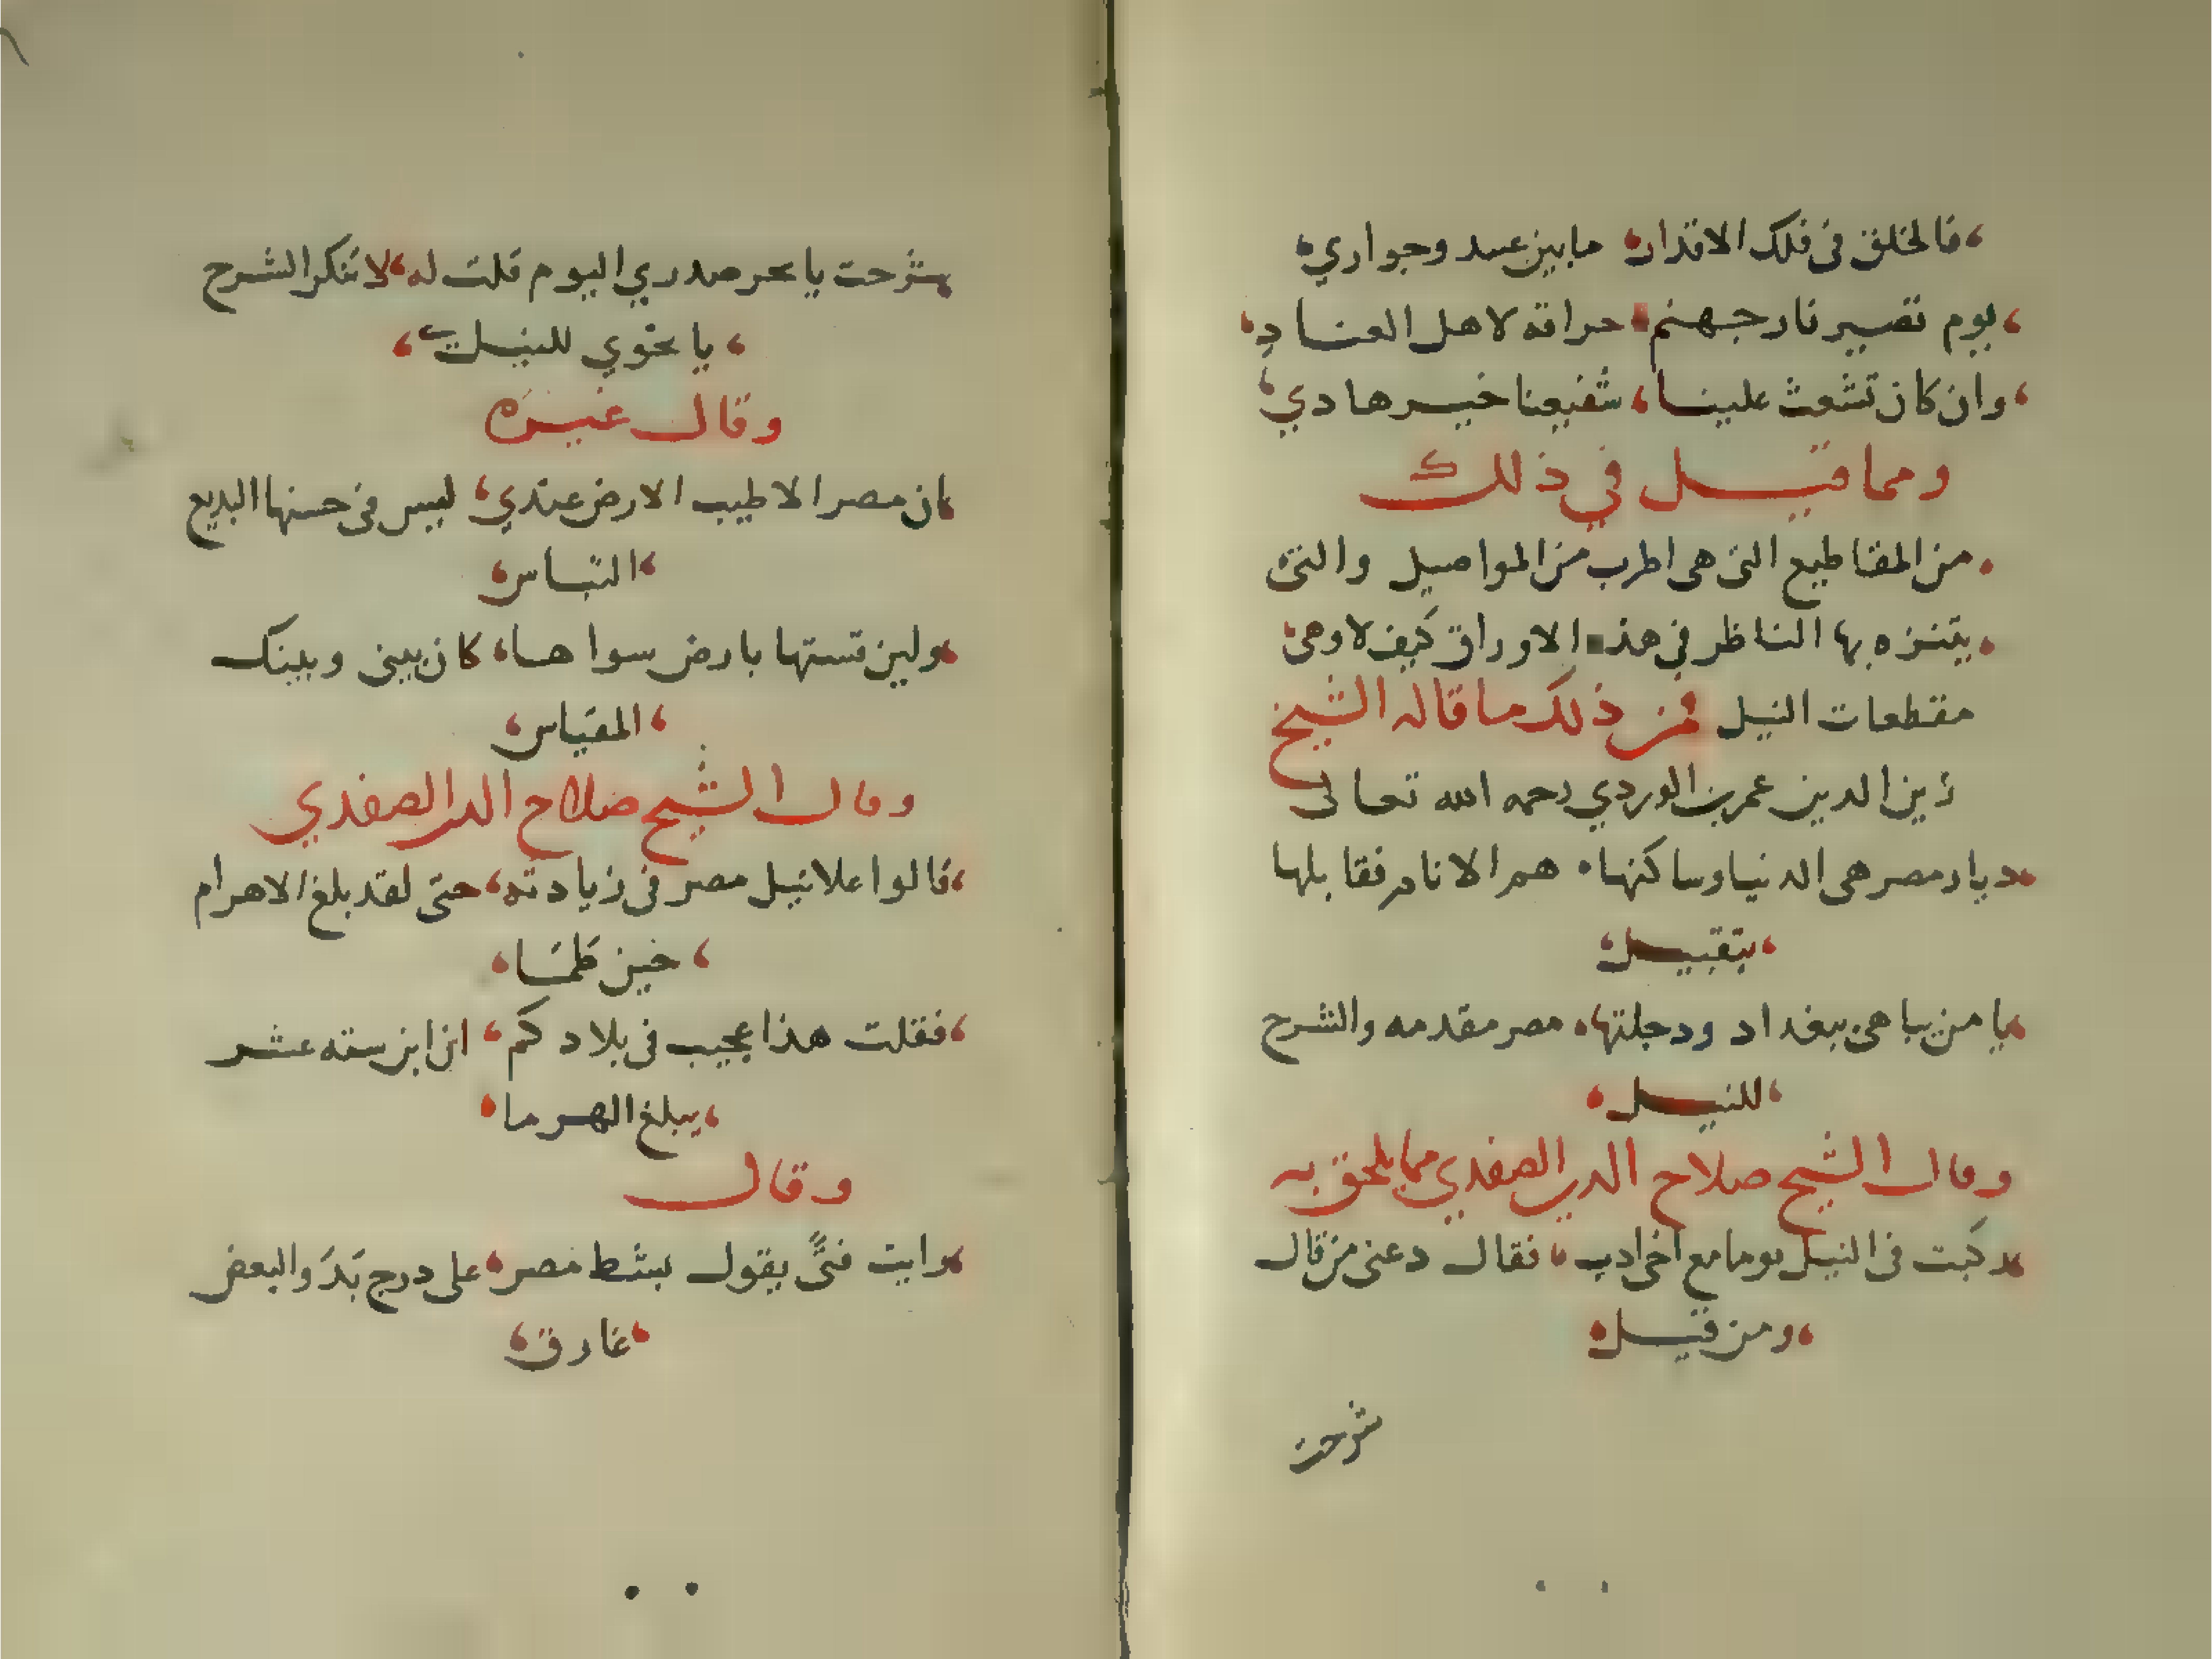 فالخلق في فلك الاقدار ما بين عبيد وجواري
يوم تصير نار جهنم حراقه لاهل العناد
وان كان تشعث علينا شفيعنا خير هادي
ومما قيل في ذلك
من المقاطيع التي هي اطرب من المواصيل والتي
يتنزه بها الناظر في هذه الاوراق كيف لا وهي
مقطعات النيل فمن ذلك ما قاله الشيخ
زين الدين عمر بن الوردي رحمه الله تعالى
ديار مصر هي الدنيا وساكنها هم الانام فقابلها
بتقبيل
يا من يباهي ببغداد ودجلتها مصر مقدمه والشرح
للنيل
وقال الشيخ صلاح الدين الصفدي مما يلحق به
ركبت في النيل يوما مع اخي ادب فقال دعني من قال
ومن قيل
شرحت
شرحت يا بحر صدري اليوم قلت له لا تنكر الشرح
يا نحوي للنيل
وقال غيره
ان مصر الاطيب الارض عندي ليس في حسنها البديع
التباس
ولين قستها بارض سواها كان بيني وبينك
المقياس
وقال الشيخ صلاح الدين الصفدي
قالوا علا نيل مصر في زيادته حتى لقد بلغ الاهرام
حين طما
فقلت هذا عجيب في بلادكم ان ابن سته عشر
يبلغ الهرما
وقال
رايت فتًى يقول بشط مصر على درج بدَت والبعض
غارق